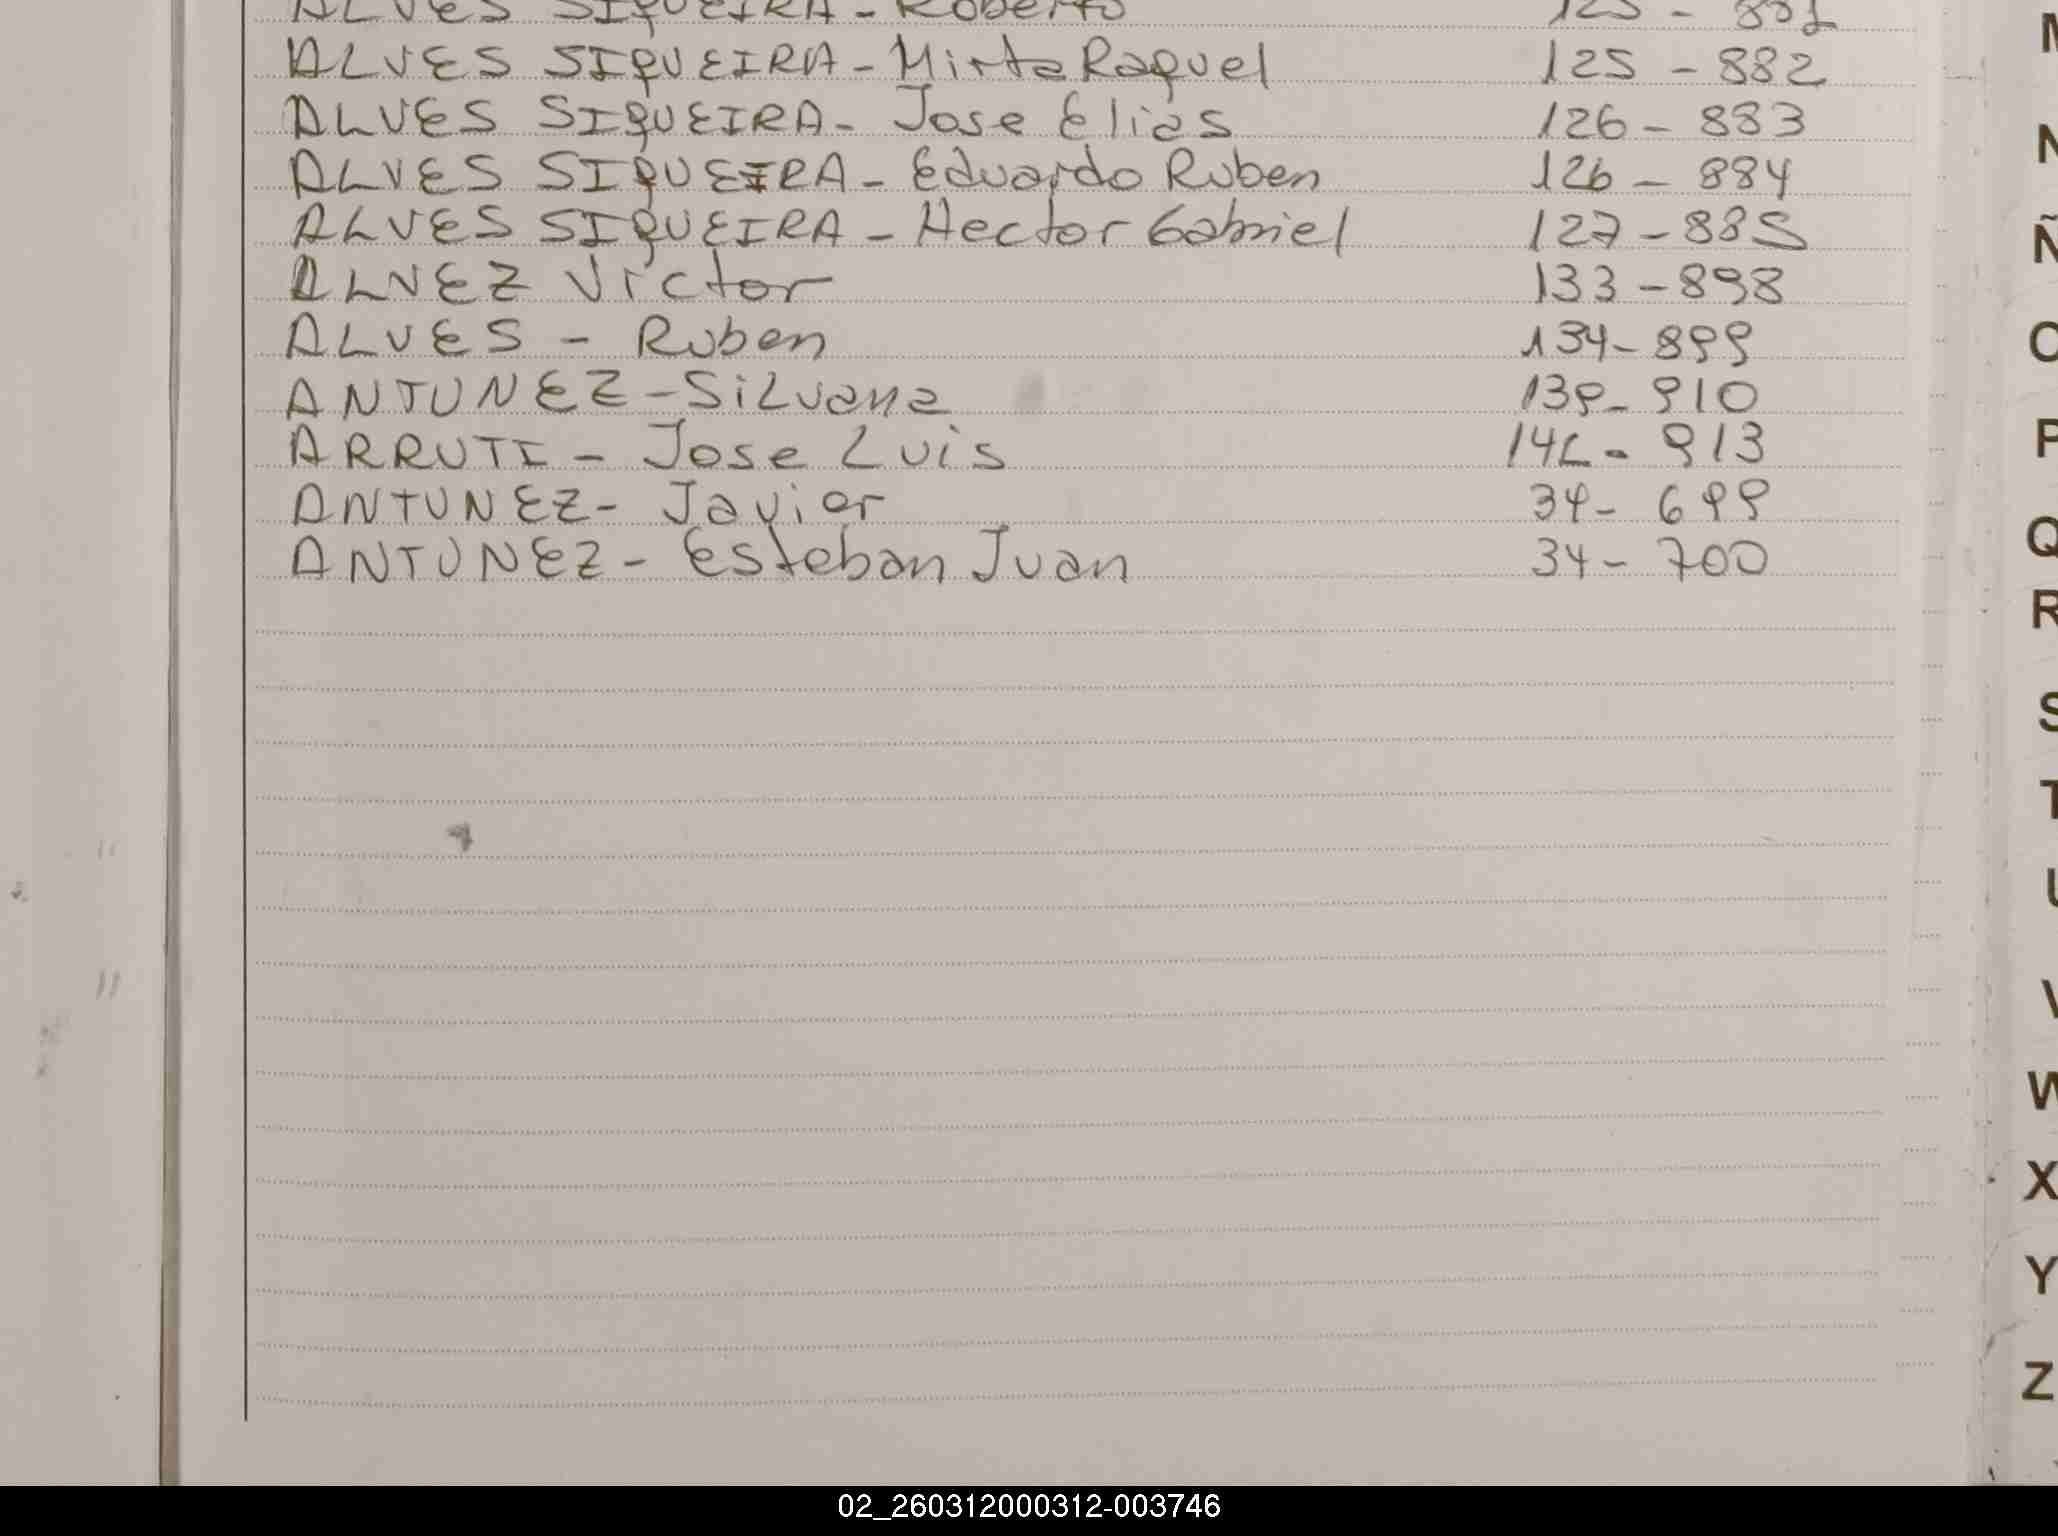 ALVES SIQUEIRA - Roberto 125 - 881
ALVES SIQUEIRA - Mirta Raquel 125 - 882
ALVES SIQUEIRA - Jose Elias 126 - 883
ALVES SIQUEIRA - Eduardo Ruben 126 - 884
ALVES SIQUEIRA - Hector Gabriel 127 - 885
ALVEZ Victor 133 - 898
ALVES - Ruben 134 - 899
ANTUNEZ - Silvana 139 - 910
ARRUTI - Jose Luis 913
ANTUNEZ - Javier 34 - 699
ANTUNEZ - Esteban Juan 34 - 700
M
N
Ñ
O
P
Q
R
S
T
U
V
W
X
Y
Z
02_260312000312-003746